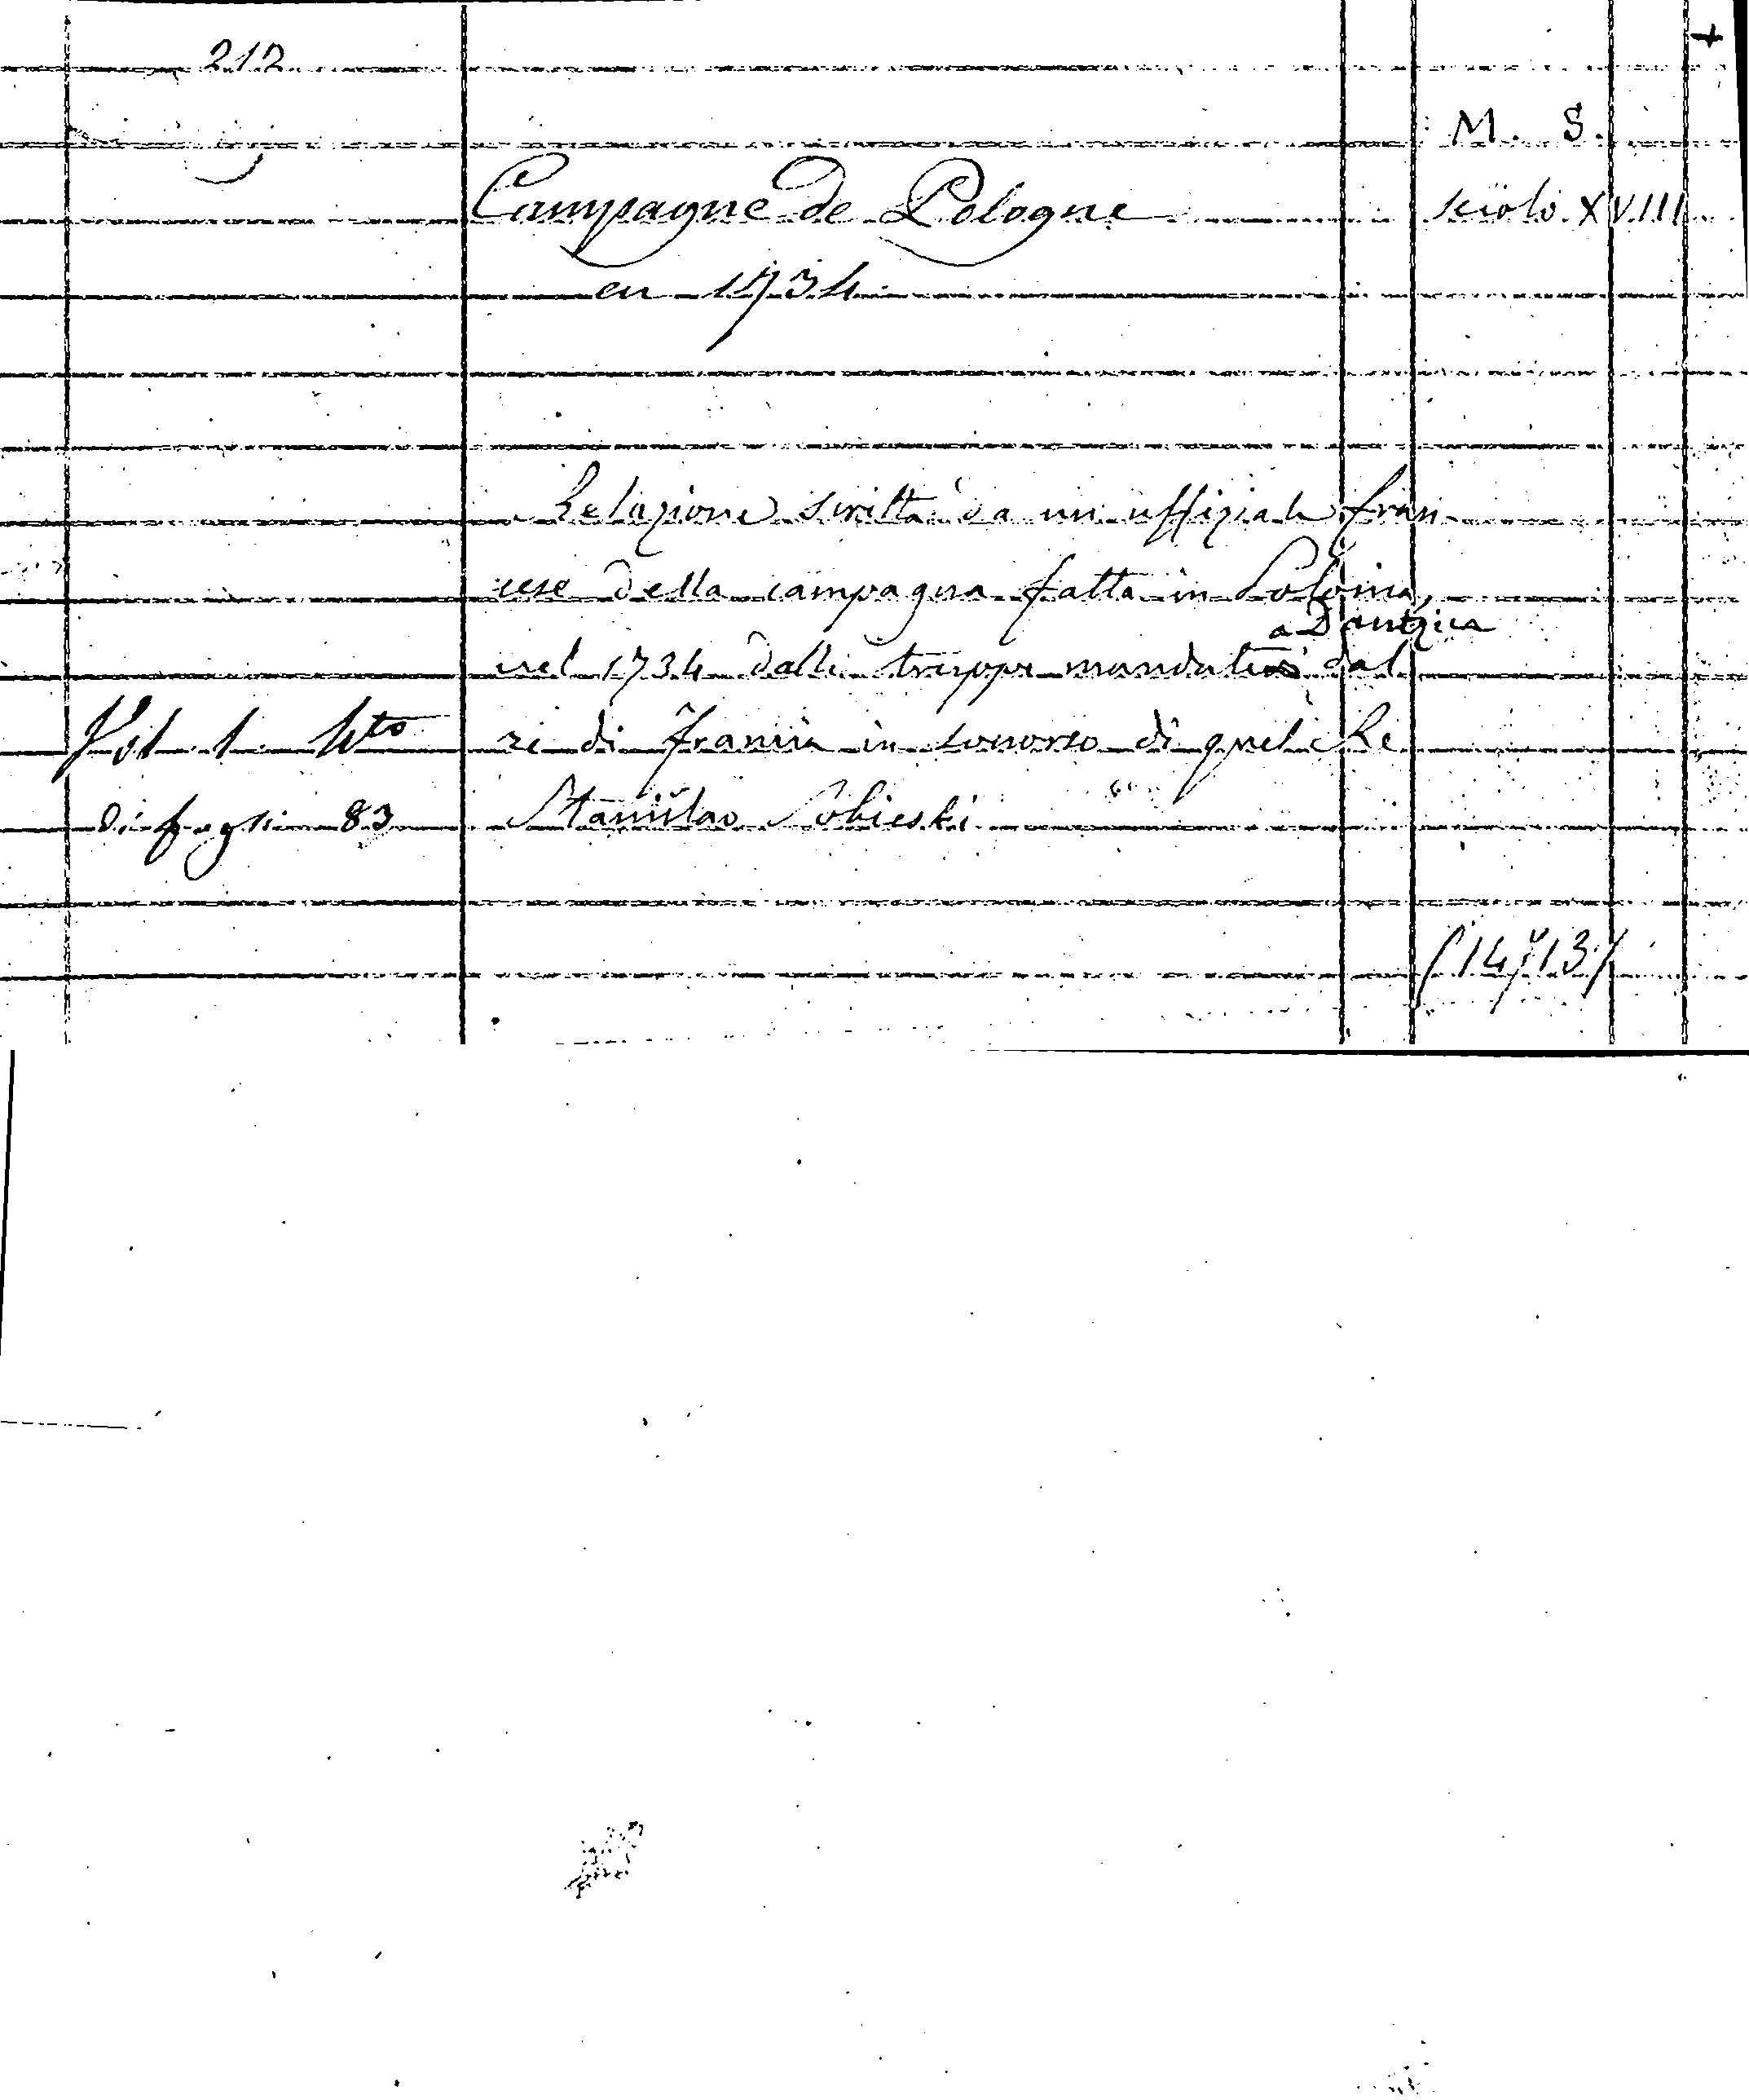 212
M. S.
Campagne de Pologne
secolo XVIII
en 1734
Relazione scritta da un uffiziale fran
cese della campagna fatta in Polonia,
a Dantzica
nel 1734 dalle truppe mandate dal
Vol. 1. 4to
re di Francia in soccorso di quel Re
di fogli 83
Stanislao Sobieski
(14713)